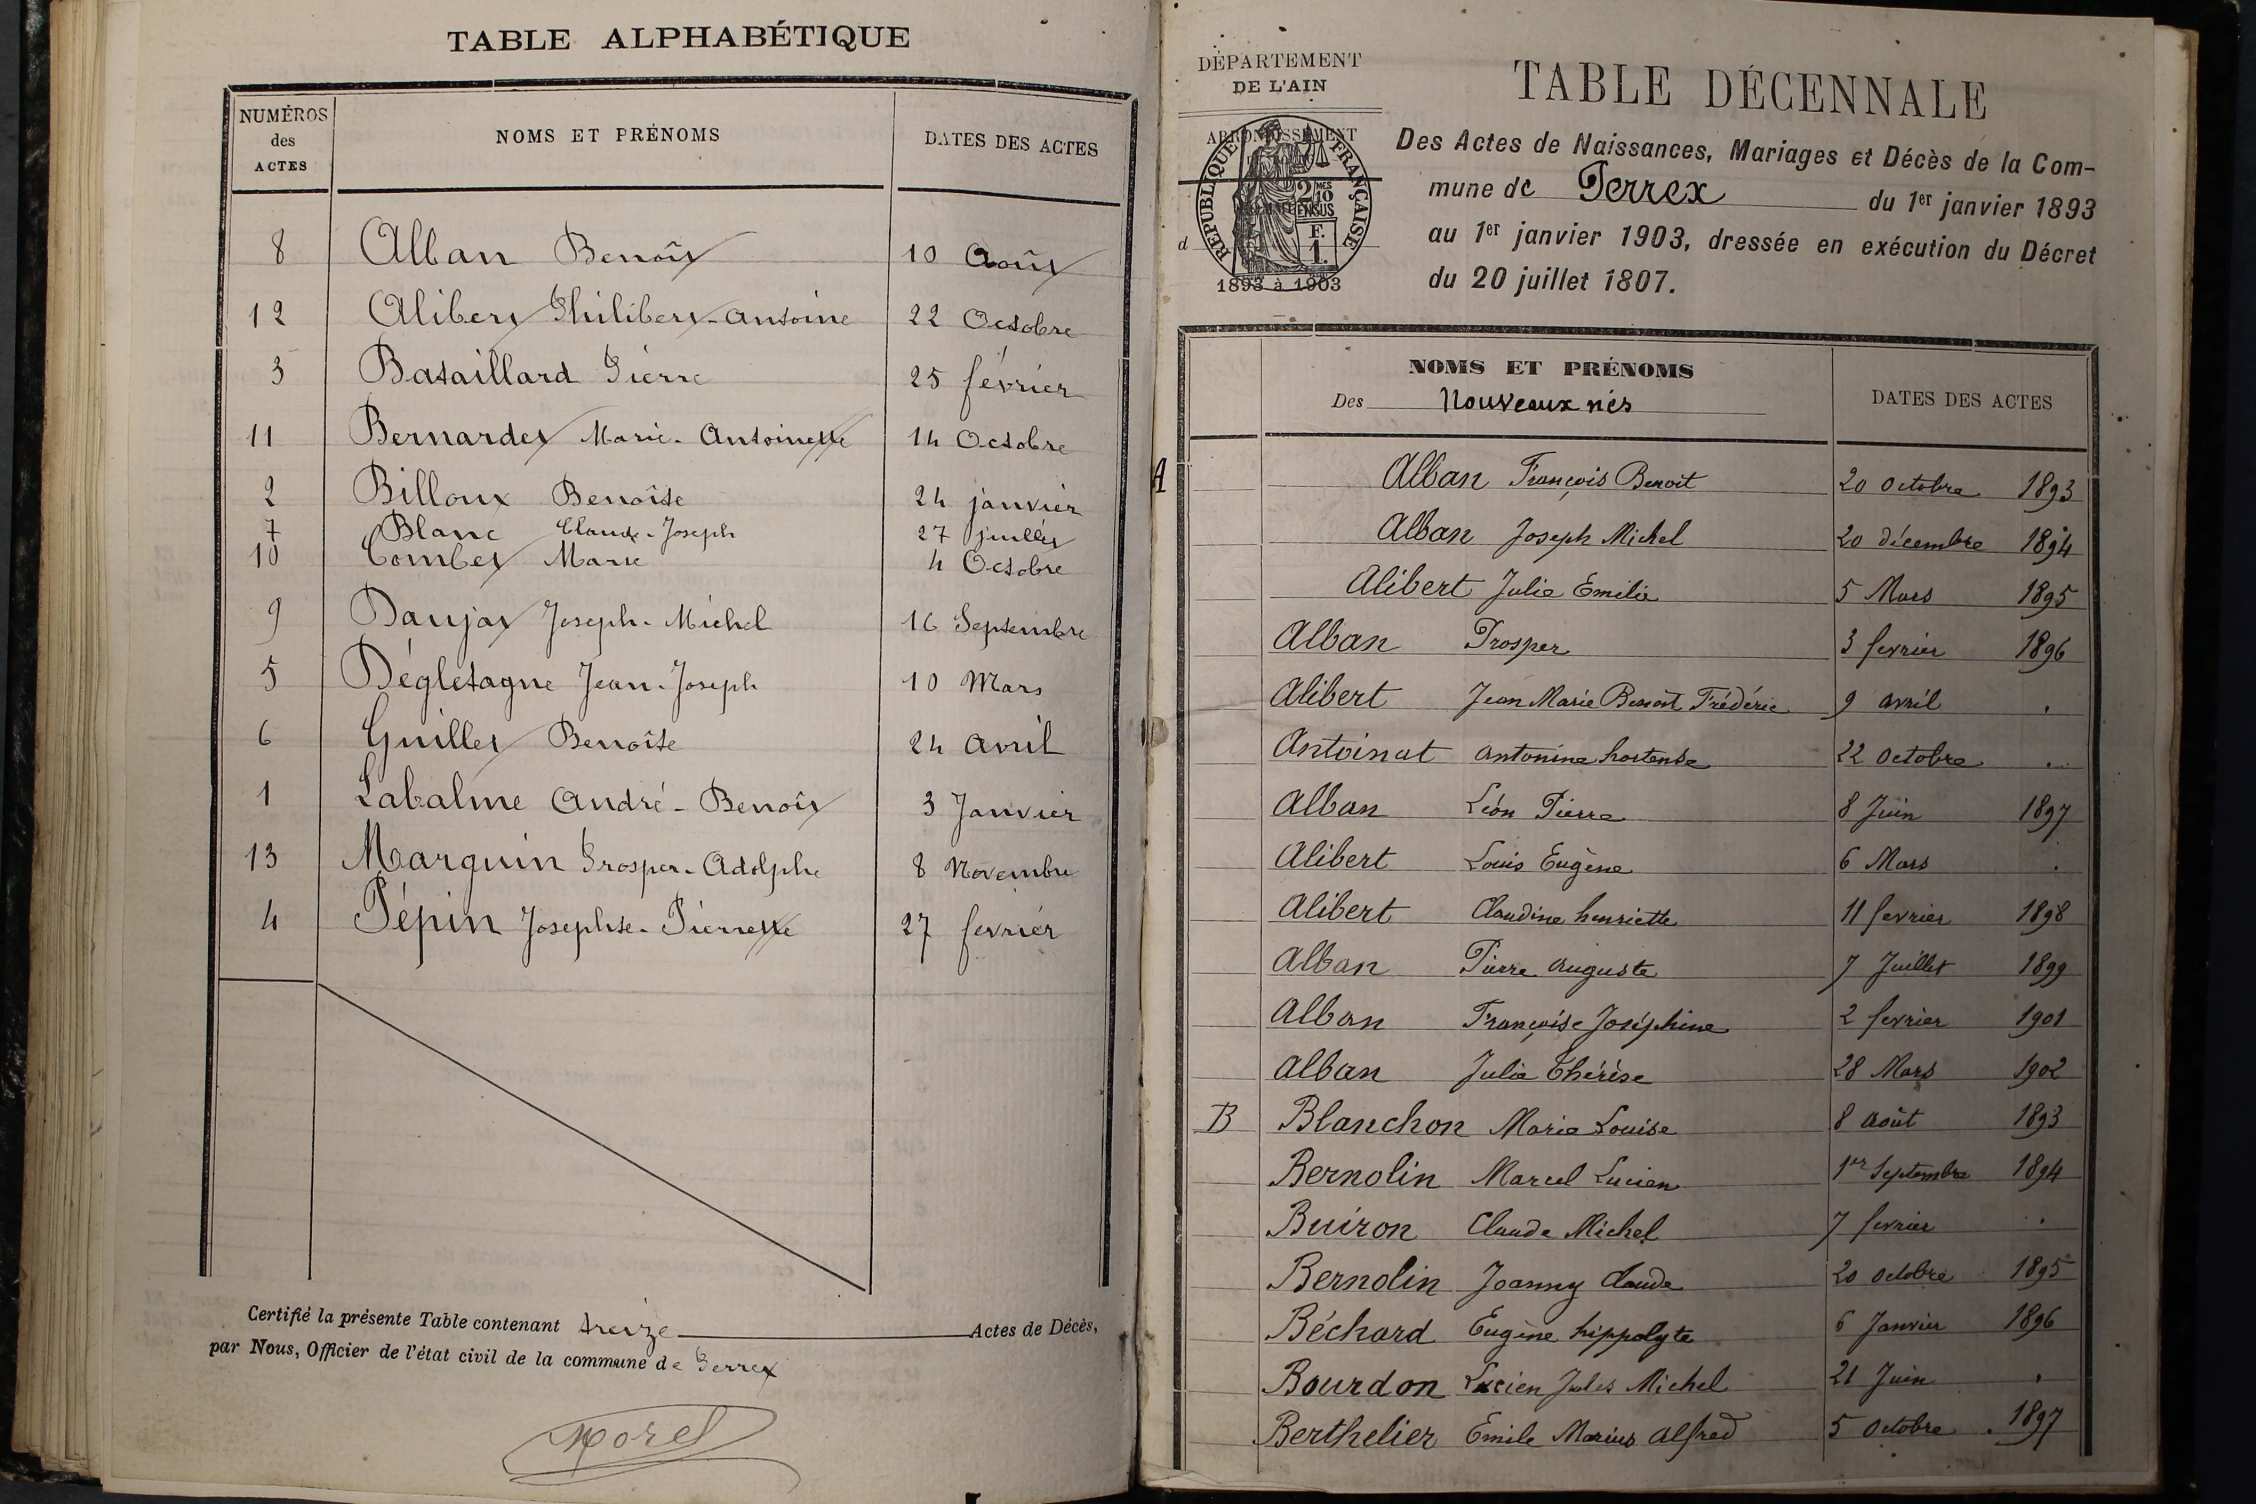 TABLE ALPHABÉTIQUE
NUMÉROS des ACTES
NOMS ET PRÉNOMS
DATES DES ACTES
8 Alban Benoît 10 Août
12 Alibert Philibert-Antoine 22 Octobre
3 Bataillard Pierre 25 février
11 Bernardet Marie-Antoinette 14 Octobre
2 Billoux Benoîte 24 janvier
7 Blanc Claude-Joseph 27 juillet
10 Combet Marie 4 Octobre
9 Daujat Joseph-Michel 16 Septembre
5 Dégletagne Jean-Joseph 10 Mars
6 Guillet Benoîte 24 avril
1 Labalme André-Benoît 3 Janvier
13 Marguin Prosper-Adolphe 8 Novembre
4 Pépin Josephte-Pierrette 27 fevrier
Certifié la présente Table contenant treize Actes de Décès,
par Nous, Officier de l'état civil de la commune de Perrex
Morel
DÉPARTEMENT
DE L'AIN
ARRONDISSEMENT
RÉPUBLIQUE FRANÇAISE
2 MES 10
EN SUS
F.
1.
d
1893 à 1903
TABLE DÉCENNALE
Des Actes de Naissances, Mariages et Décès de la Com-
mune de Perrex du 1er janvier 1893
au 1er janvier 1903, dressée en exécution du Décret
du 20 juillet 1807.
NOMS ET PRÉNOMS
Des Nouveaux nés
DATES DES ACTES
A Alban François Benoit 20 octobre 1893
Alban Joseph Michel 20 décembre 1894
Alibert Julie Emilie 5 Mars 1895
Alban Prosper 3 fevrier 1896
Alibert Jean Marie Benoit Frédéric 9 avril .
Antoinat Antonine hortense 22 octobre ..
Alban Léon Pierre 8 Juin 1897
Alibert Louis Eugène 6 Mars .
Alibert Claudine henriette 11 fevrier 1898
Alban Pierre Auguste 7 Juillet 1899
Alban Françoise Joséphine 2 fevrier 1901
Alban Julie Thérèse 28 Mars 1902
B Blanchon Marie Louise 8 août 1893
Bernolin Marcel Lucien 1er Septembre 1894
Buiron Claude Michel 7 fevrier .
Bernolin Joanny Claude 20 octobre 1895
Béchard Eugène hippolyte 6 Janvier 1896
Bourdon Lucien Jules Michel 21 Juin .
Berthelier Emile Marius Alfred 5 octobre . 1897